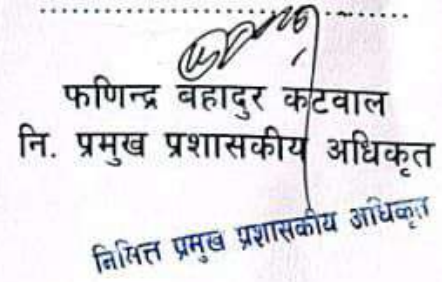 फणिन्द्र बहादुर कटवाल
नि. प्रमुख प्रशासकीय अधिकृत
निमित्त प्रमुख प्रशासकीय अधिकृत